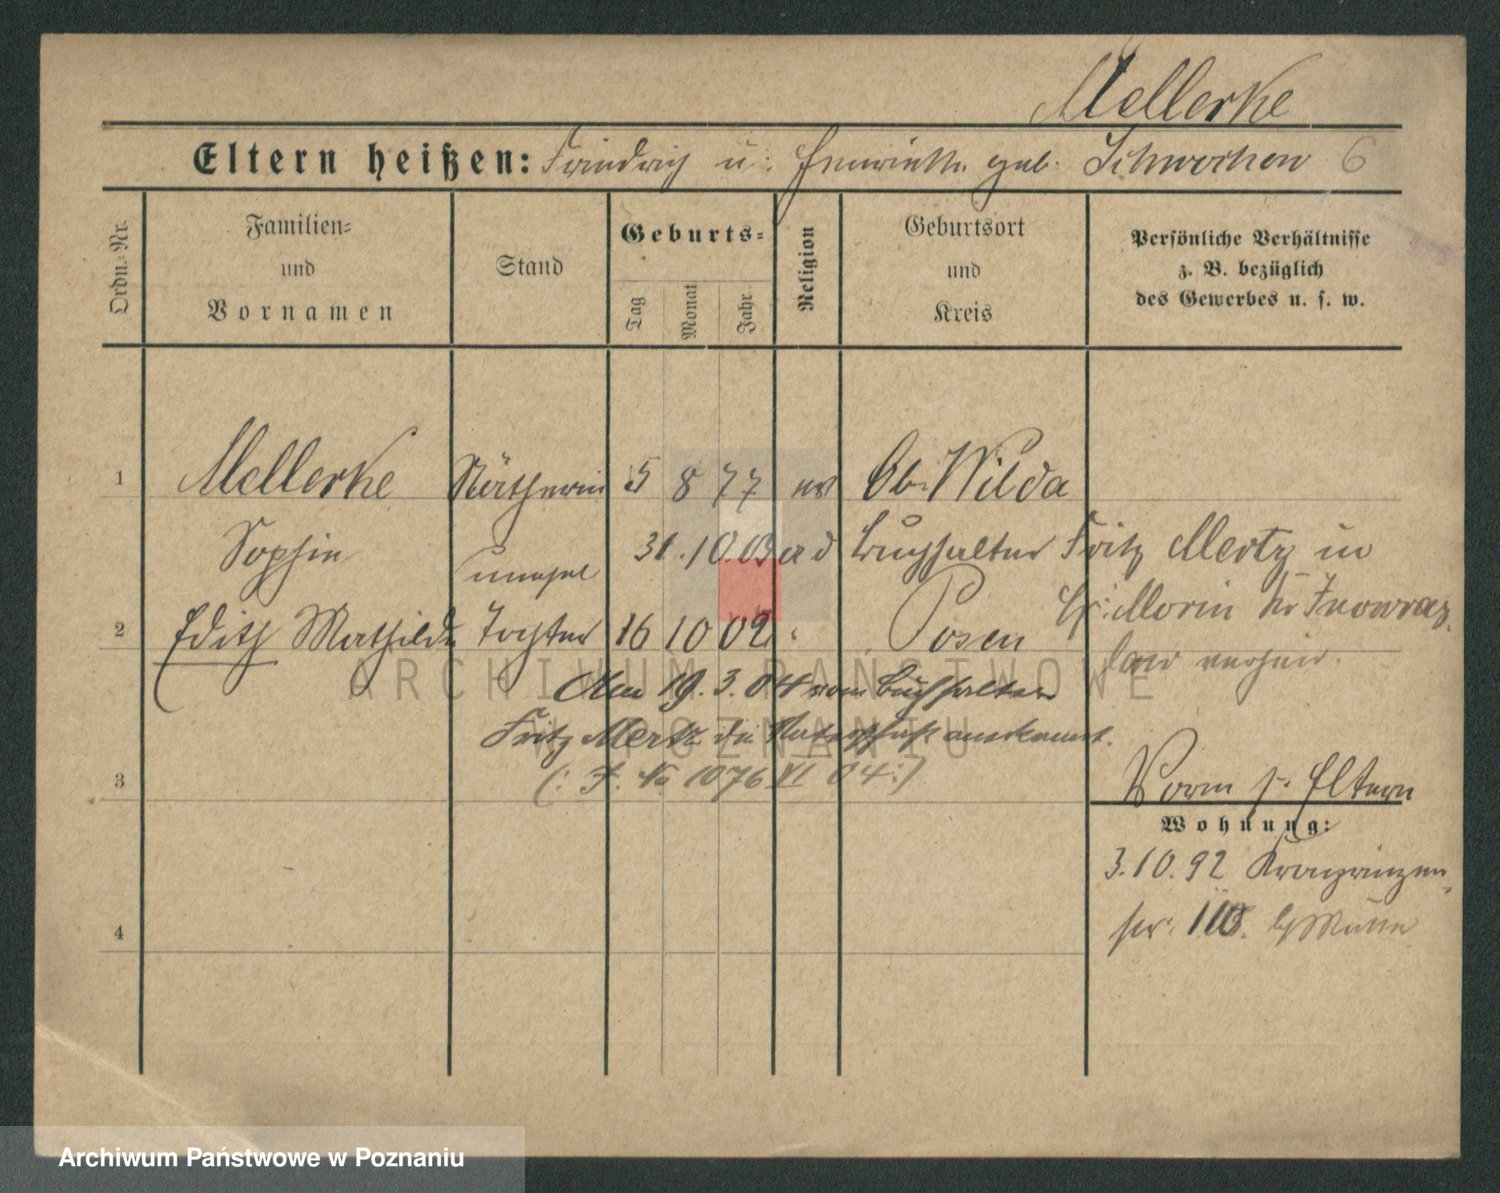 Mellerke
Eltern heißen: Friedrich u. Henriette geb. Schwochow 6
Ordn.-Nr.
Familien-
und
Vornamen
Stand
Geburts-
Tag
Monat
Jahr
Religion
Geburtsort
und
Kreis
Persönliche Verhältnisse
z. B. bezüglich
des Gewerbes u. s. w.
1 Mellerke Nätherin 5 8 77 ev Ob. Wilda
Sophie 31.10.03 a d Buchhalter Fritz Mertz in
unehel
Morin Kr Inowraz-
2 Edith Mathilde Tochter 16 10 02 Posen
law verheir.
Am 19.3.04 vom Buchhalter
Fritz Mertz die Vaterschaft anerkannt.
(: J. No 1076 VI 04 :)
3
Vorm s. Eltern
Wohnung:
3.10.92 Kronprinzen-
str. 110. b/
4
ARCHIWUM PAŃSTWOWE
W POZNANIU
Archiwum Państwowe w Poznaniu